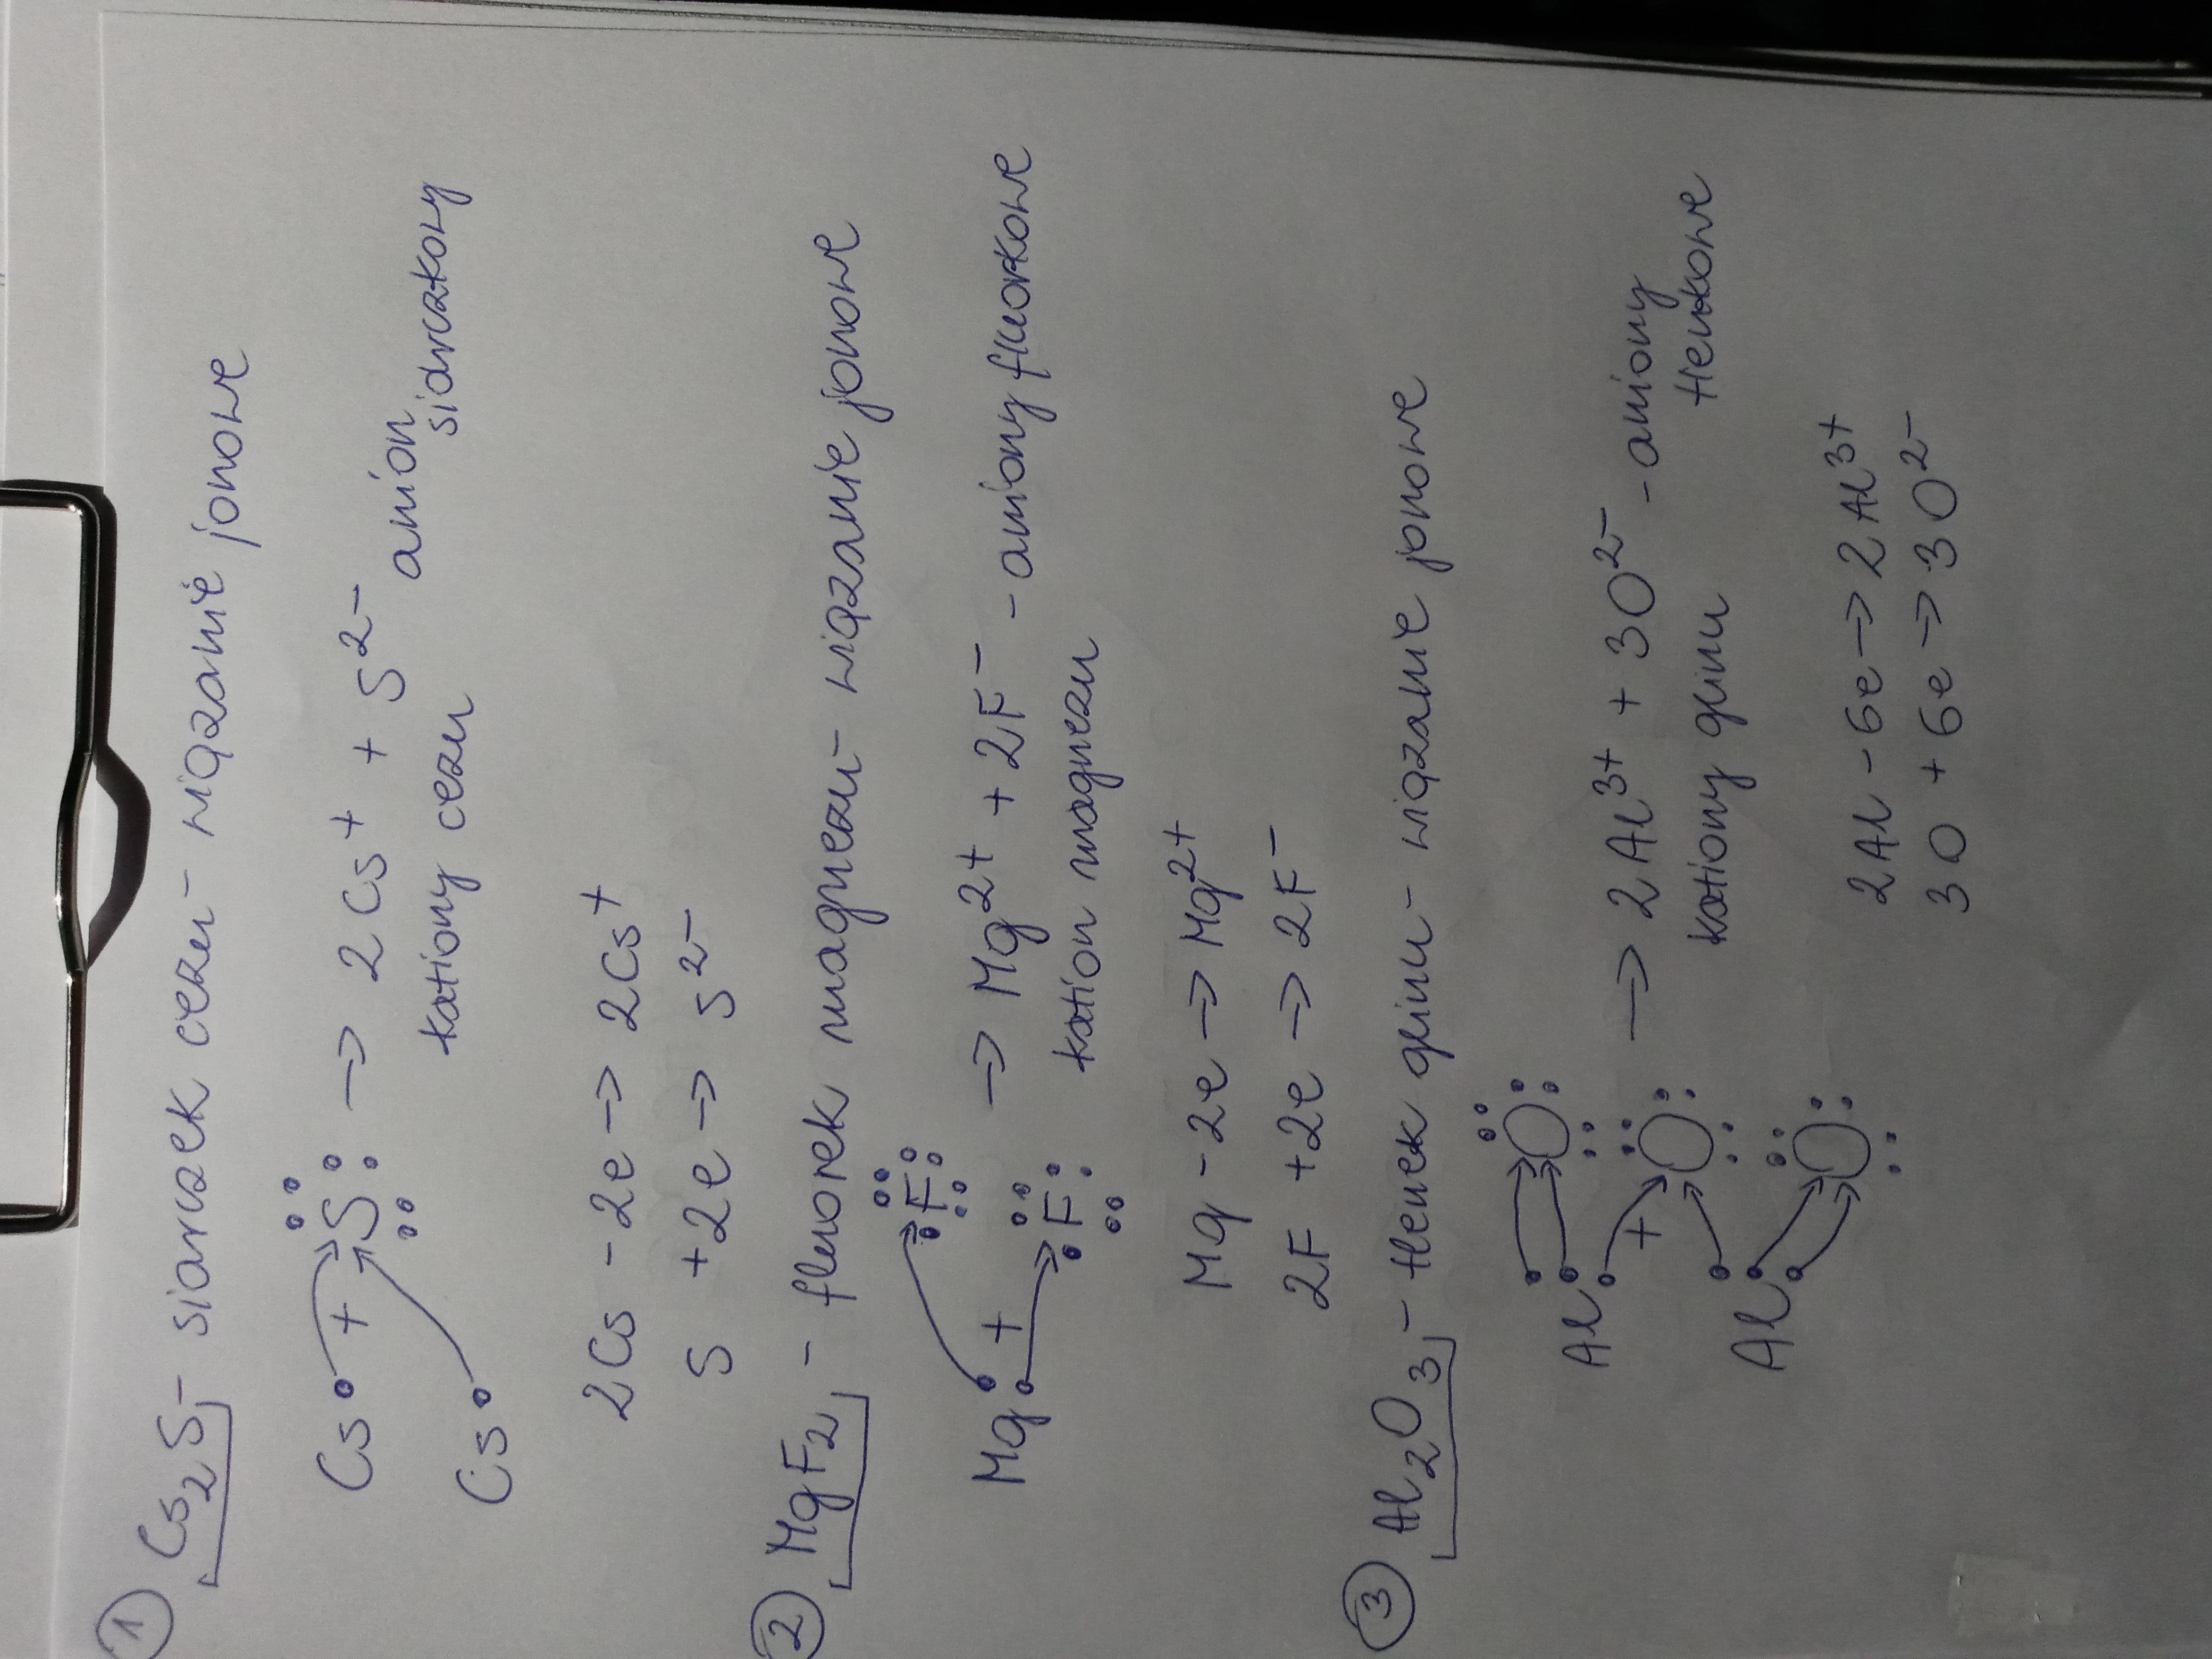 ① Cs₂S - siarczek cezu - wiązanie jonowe
Cs + S → 2Cs⁺ + S²⁻
Cs kationy cezu anion siarczkowy
2Cs - 2e → 2Cs⁺
S + 2e → S²⁻
② MgF₂ - fluorek magnezu - wiązanie jonowe
F
Mg + → Mg²⁺ + 2F⁻ - aniony fluorkowe
F kation magnezu
Mg - 2e → Mg²⁺
2F + 2e → 2F⁻
③ Al₂O₃ - tlenek glinu - wiązanie jonowe
O
Al + O → 2Al³⁺ + 3O²⁻ - aniony tlenkowe
kationy glinu
Al O
2Al - 6e → 2Al³⁺
3O + 6e → 3O²⁻